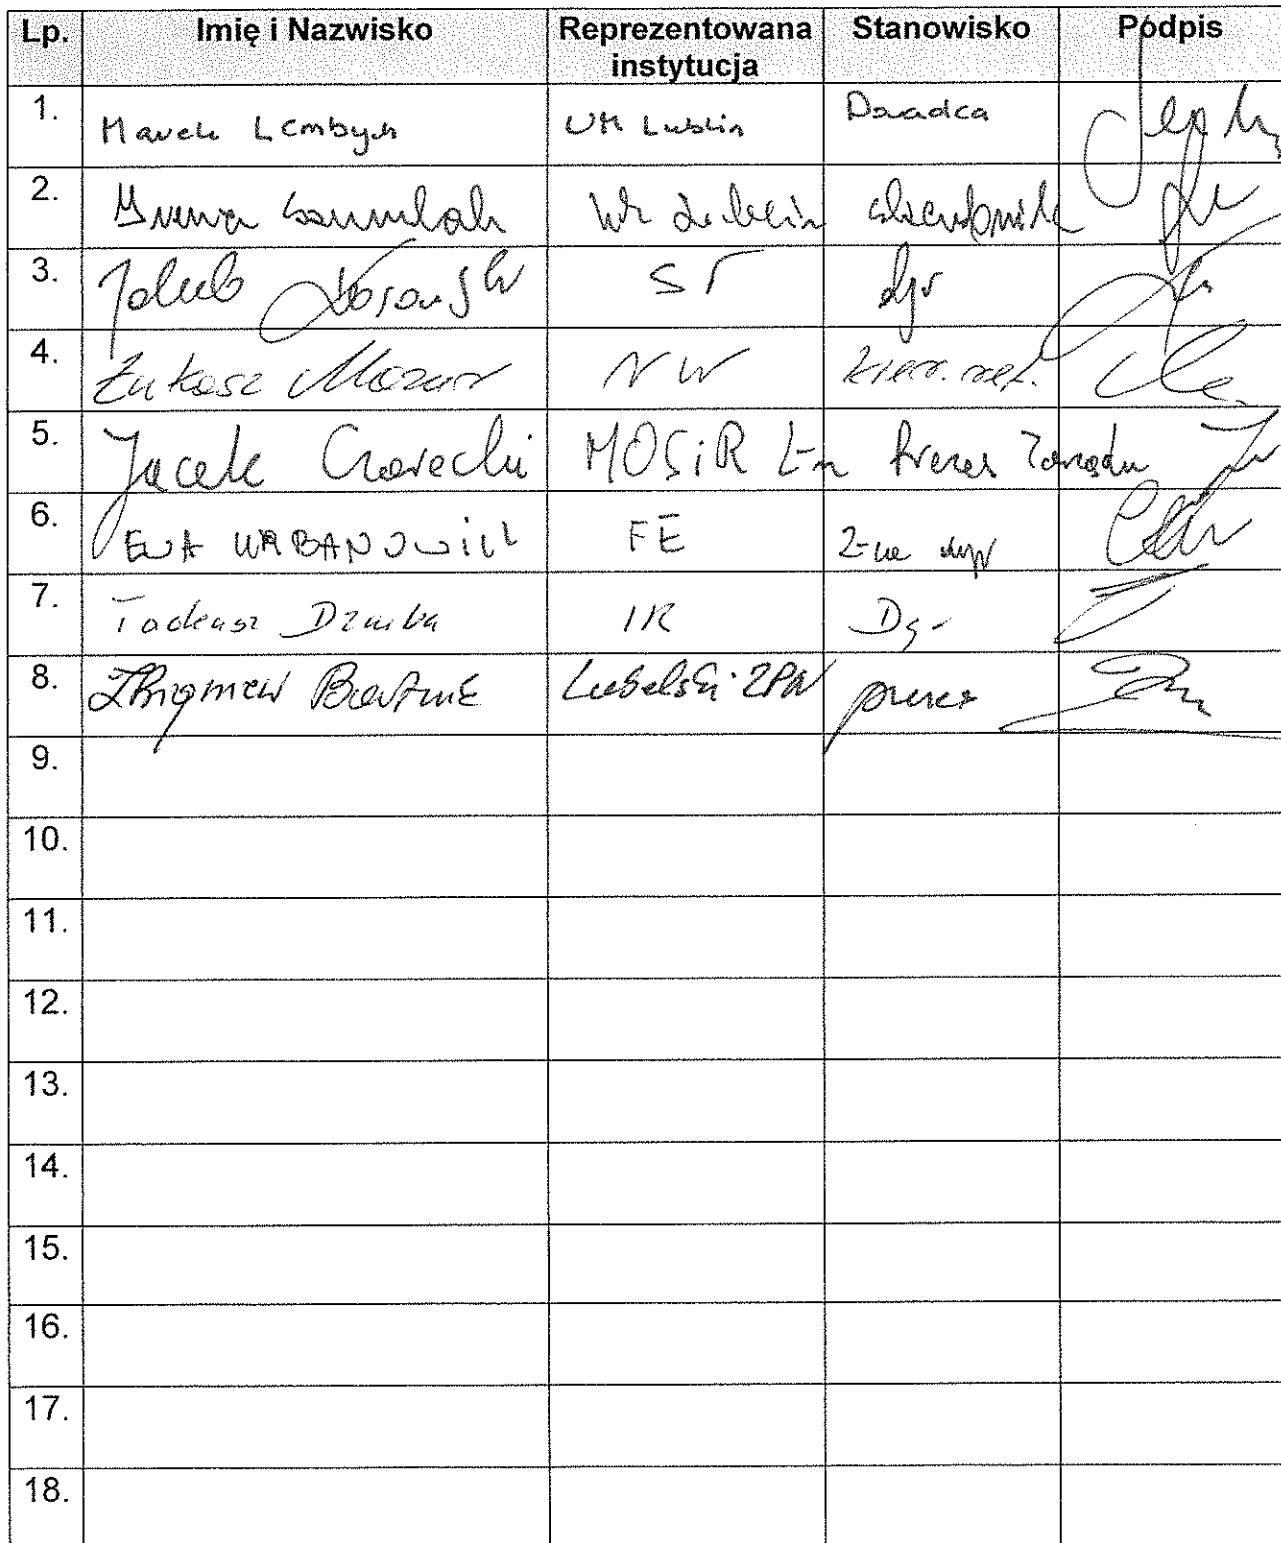 Lp. Imię i Nazwisko Reprezentowana instytucja Stanowisko Podpis
1. Marek UM Lublin Doradca
2. UM Lublin
3. Jakub Kosowski ST dyr
4. Łukasz Mazur NW kier. ref.
5. Jacek Czarecki MOSiR L-n Prezes Zarządu
6. EWA URBANOWICZ FE Z-ca dyr
7. Tadeusz Dziuba IR Dyr
8. Zbigniew Bartnik Lubelski ZPN prezes
9.
10.
11.
12.
13.
14.
15.
16.
17.
18.